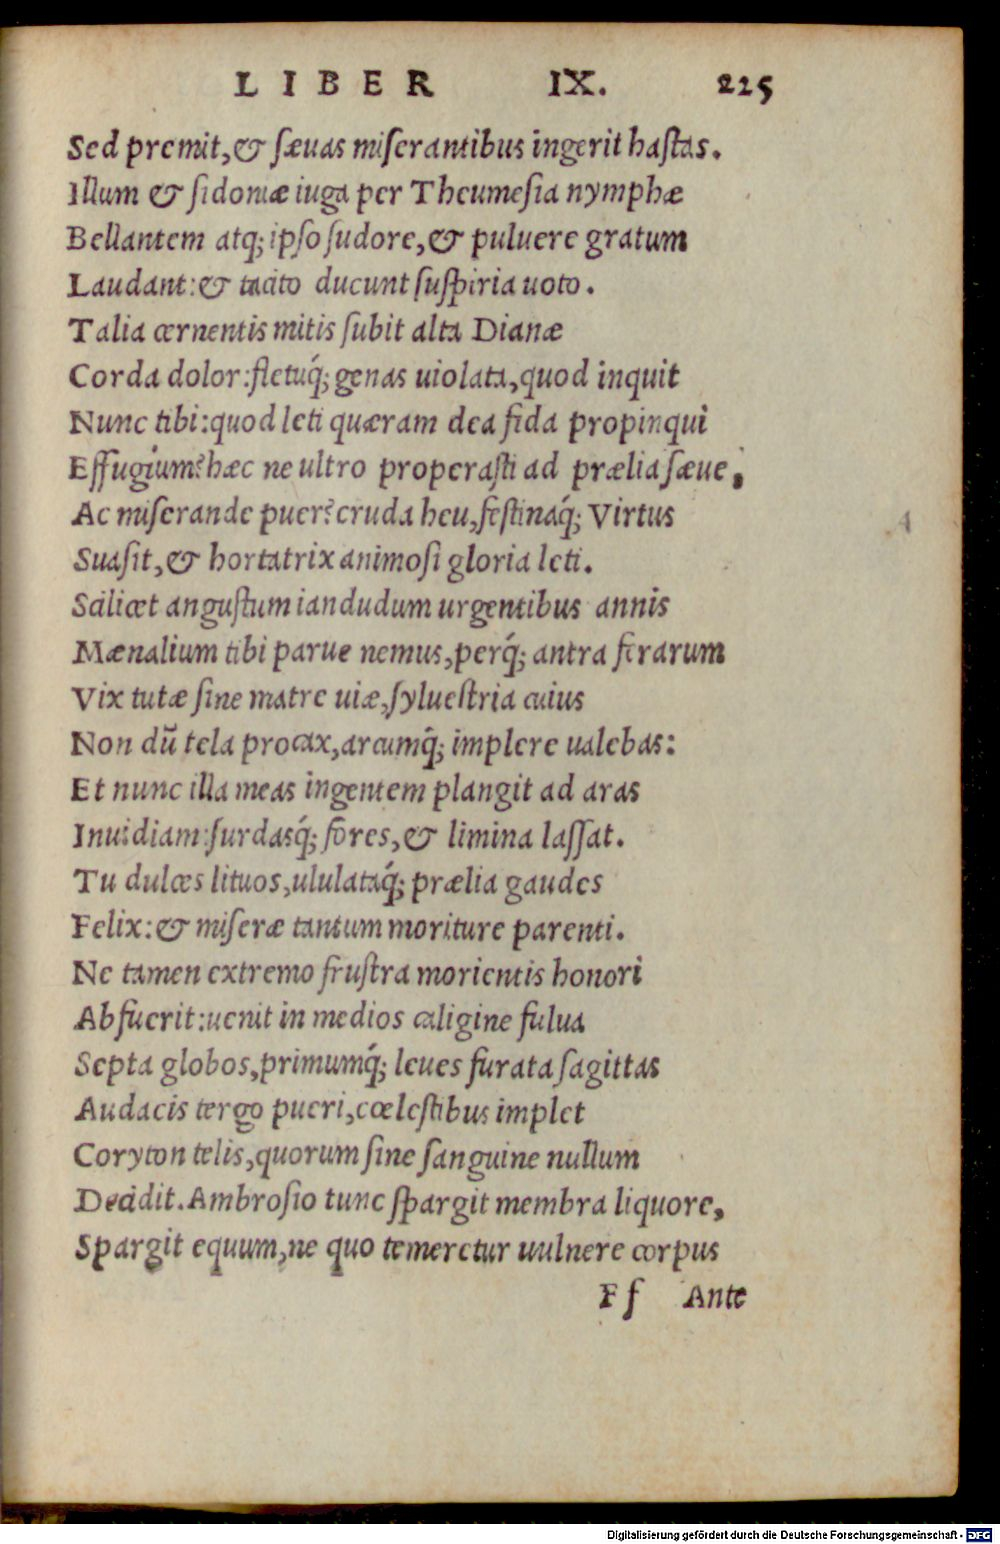 LIBER IX. 225
Sed premit,& sæuas miserantibus ingerit hastas.
Illum & sidoniæ iuga per Theumesia nymphæ
Bellantem atq; ipso sudore,& puluere gratum
Laudant:& tacito ducunt suspiria uoto.
Talia cernentis mitis subit alta Dianæ
Corda dolor:fletuq́; genas uiolata,quod inquit
Nunc tibi:quod leti quæram dea fida propinqui
Effugium?hæc ne ultro properasti ad prælia sæue,
Ac miserande puer?cruda heu,festinaq́; Virtus
Suasit,& hortatrix animosi gloria leti.
Scilicet angustum iandudum urgentibus annis
Mænalium tibi parue nemus,perq́; antra ferarum
Vix tutæ sine matre uiæ,syluestria cuius
Non dũ tela procax,arcumq́; implere ualebas:
Et nunc illa meas ingentem plangit ad aras
Inuidiam:surdasq́; fores,& limina lassat.
Tu dulces lituos,ululataq́; prælia gaudes
Felix:& miseræ tantum moriture parenti.
Ne tamen extremo frustra morientis honori
Abfuerit:uenit in medios caligine fulua
Septa globos,primumq́; leues furata sagittas
Audacis tergo pueri,cœlestibus implet
Coryton telis,quorum sine sanguine nullum
Decidit.Ambrosio tunc spargit membra liquore,
Spargit equum,ne quo temeretur uulnere corpus
Ff Ante
Digitalisierung gefördert durch die Deutsche Forschungsgemeinschaft - DFG